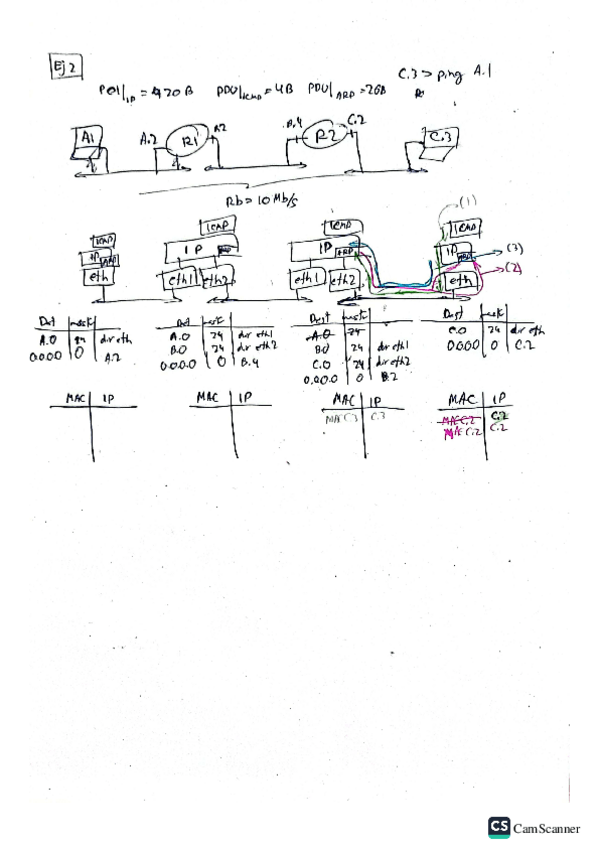 Ej 2
C.3 > ping A.1
PDU|IP = 420 B PDU|ICMP = 4B PDU|ARP = 26B
A1 A.2 R1 B.4 R2 C.2 C.3
Rb = 10 Mb/s
(1)
ICMP ICMP ICMP ICMP
IP ARP IP IP ARP IP (3)
eth eth1 eth2 eth1 eth2 eth (2)
Dest mask Dst mask Dest mask Dest mask
A.0 24 dir eth A.0 24 dir eth1 A.0 24 C.0 24 dir eth
0.0.0.0 0 A.2 B.0 24 dir eth2 B.0 24 dir eth1 0.0.0.0 0 C.2
0.0.0.0 0 B.4 C.0 24 dir eth2
0.0.0.0 0 B.2
MAC IP MAC IP MAC IP MAC IP
MAC C.3 C.3 MAC C.2 C.2
MAC C.2 C.2
CS CamScanner